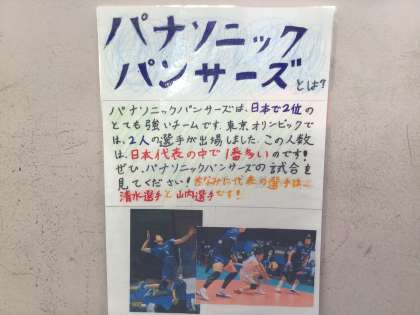 パナソニック
パンサーズとは?
パナソニックパンサーズは、日本で2位の
とても強いチームです。東京オリンピックで
は、2人の選手が出場しました。この人数
は、日本代表の中で1番多いのです!
ぜひ、パナソニックパンサーズの試合を
見てください!ちなみに代表の選手は、
清水選手と山内選手です!